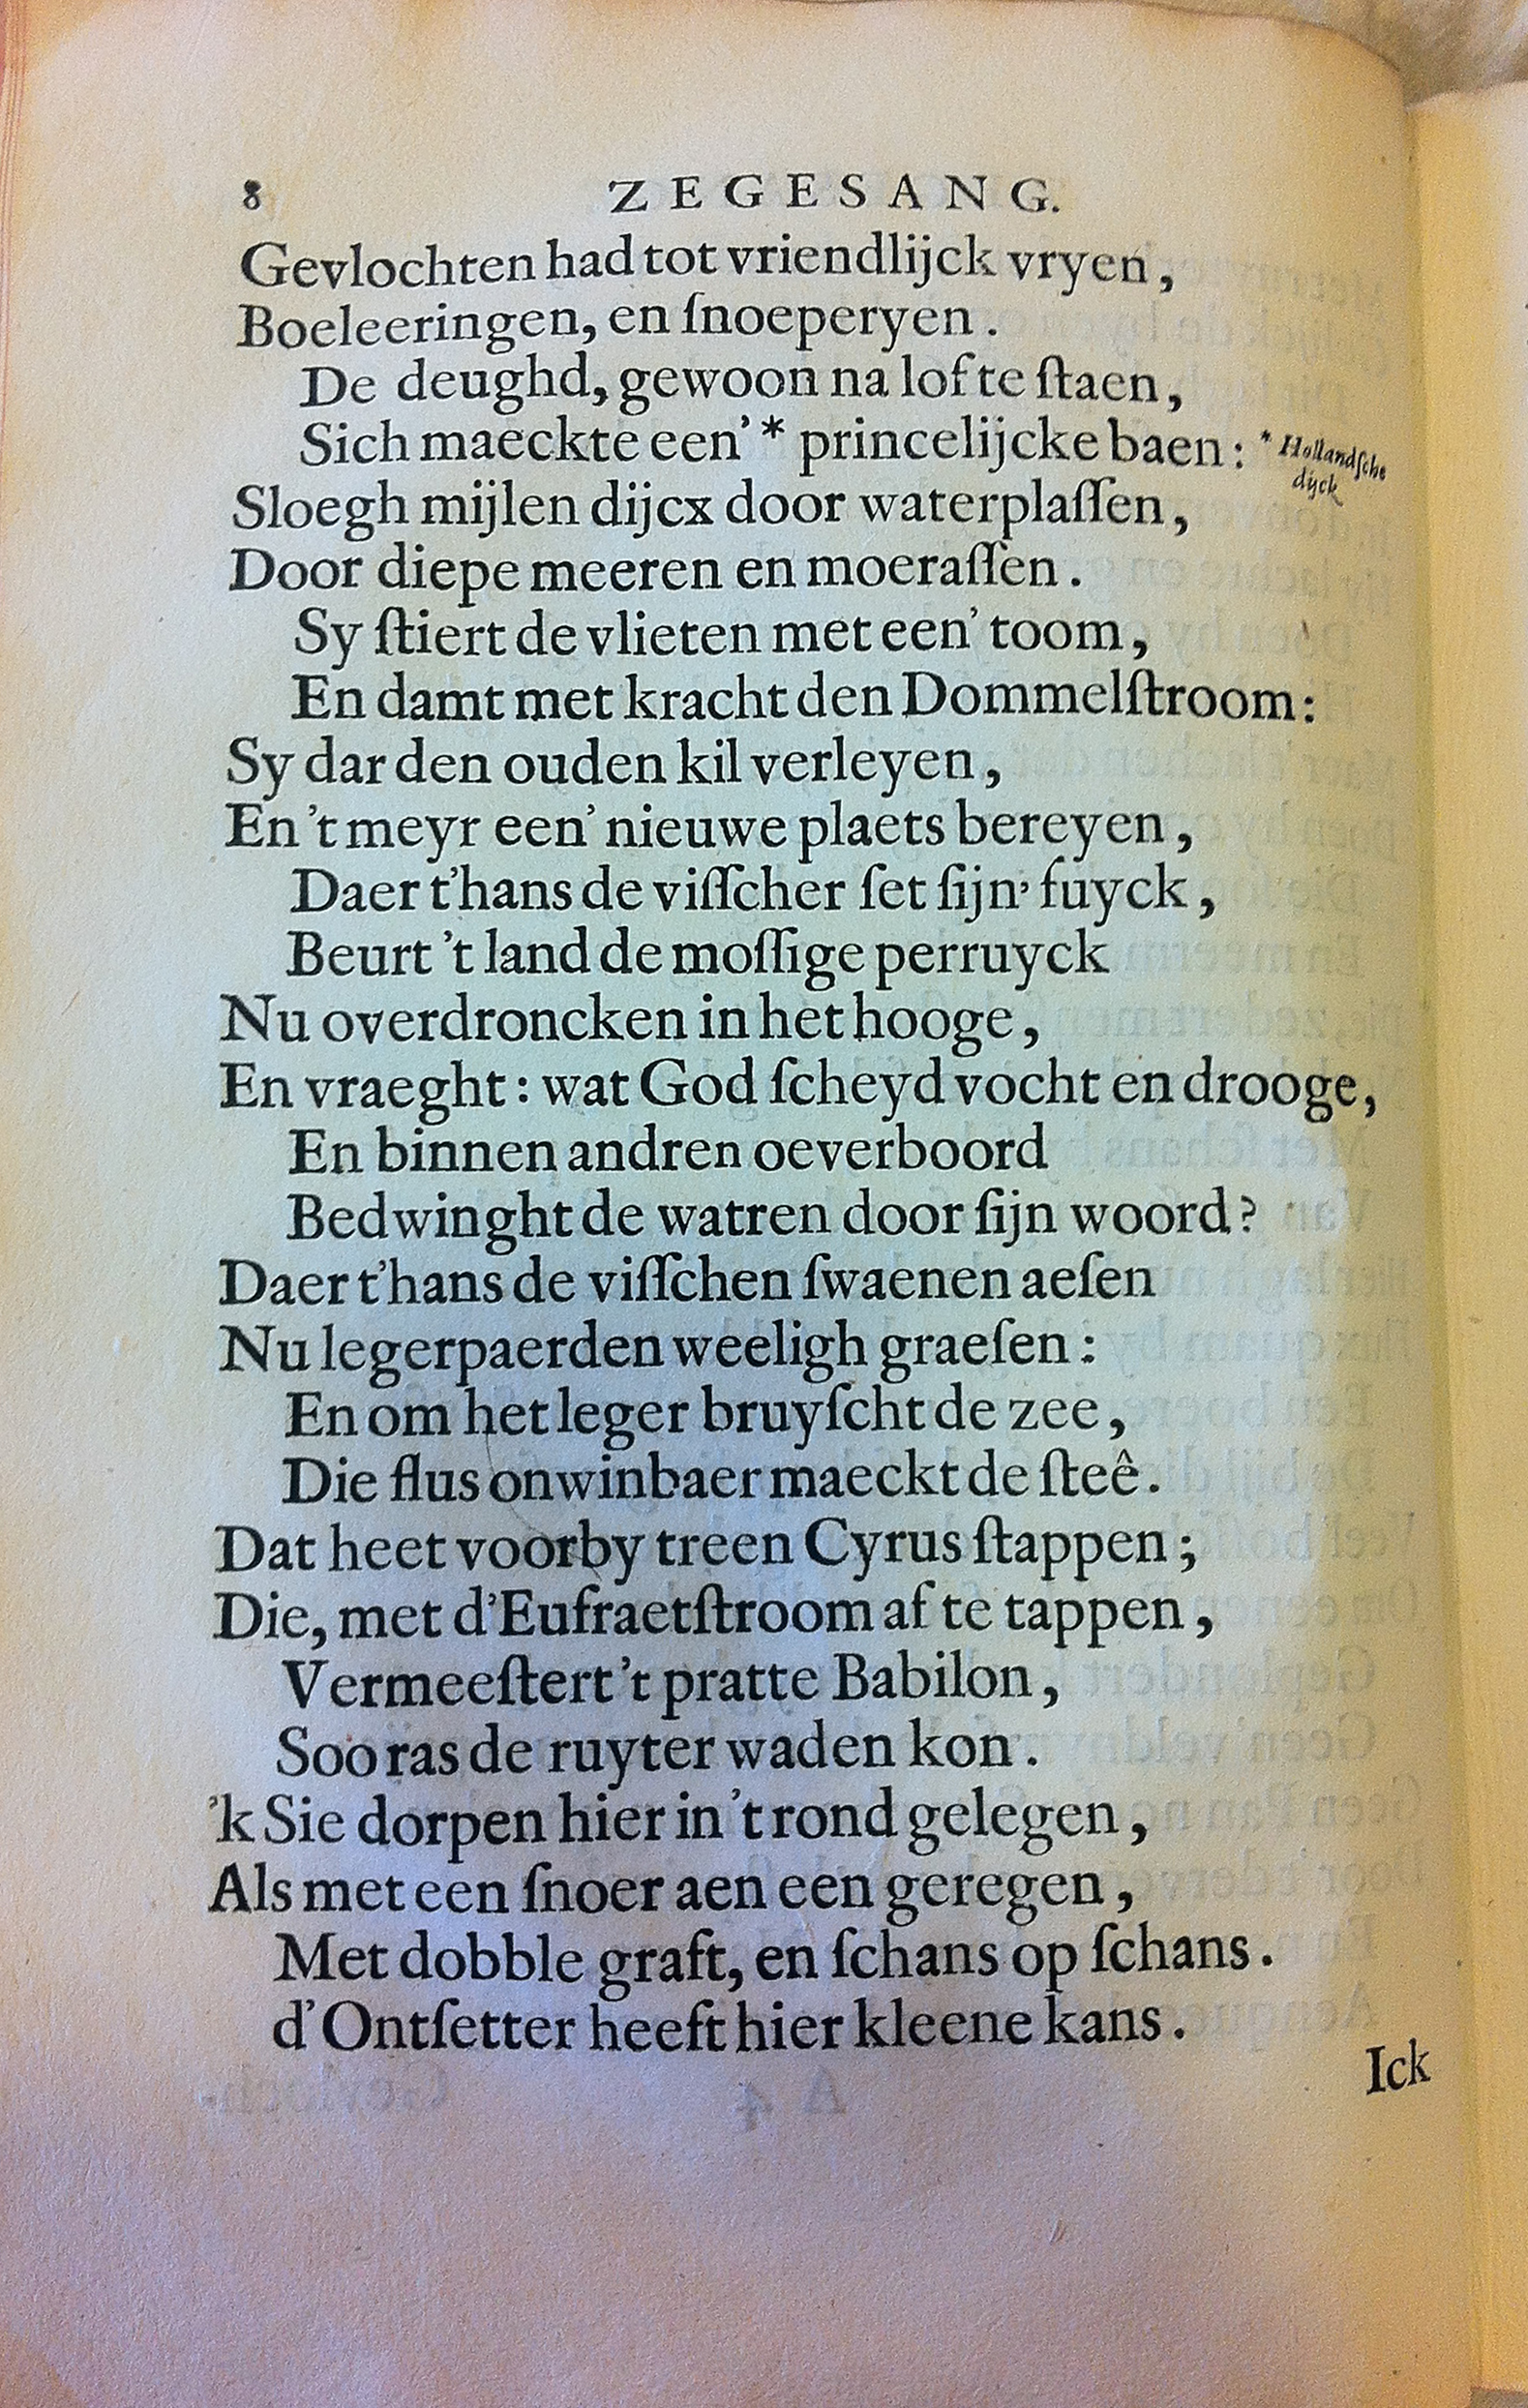 8 ZEGESANG.
Gevlochten had tot vriendlijck vryen,
Boeleeringen, en ſnoeperyen.
De deughd, gewoon na lof te ſtaen,
Sich maeckte een' * princelijcke baen: * Hollandſche
dijck
Sloegh mijlen dijcx door waterplaſſen,
Door diepe meeren en moeraſſen.
Sy ſtiert de vlieten met een' toom,
En damt met kracht den Dommelſtroom:
Sy dar den ouden kil verleyen,
En 't meyr een' nieuwe plaets bereyen,
Daer t'hans de viſſcher ſet ſijn' fuyck,
Beurt 't land de moſſige perruyck
Nu overdroncken in het hooge,
En vraeght: wat God ſcheyd vocht en drooge,
En binnen andren oeverboord
Bedwinght de watren door ſijn woord?
Daer t'hans de viſſchen ſwaenen aeſen
Nu legerpaerden weeligh graeſen:
En om het leger bruyſcht de zee,
Die flus onwinbaer maeckt de ſteê.
Dat heet voorby treen Cyrus ſtappen;
Die, met d'Eufraetſtroom af te tappen,
Vermeeſtert 't pratte Babilon,
Soo ras de ruyter waden kon.
'k Sie dorpen hier in 't rond gelegen,
Als met een ſnoer aen een geregen,
Met dobble graft, en ſchans op ſchans.
d'Ontſetter heeft hier kleene kans.
Ick